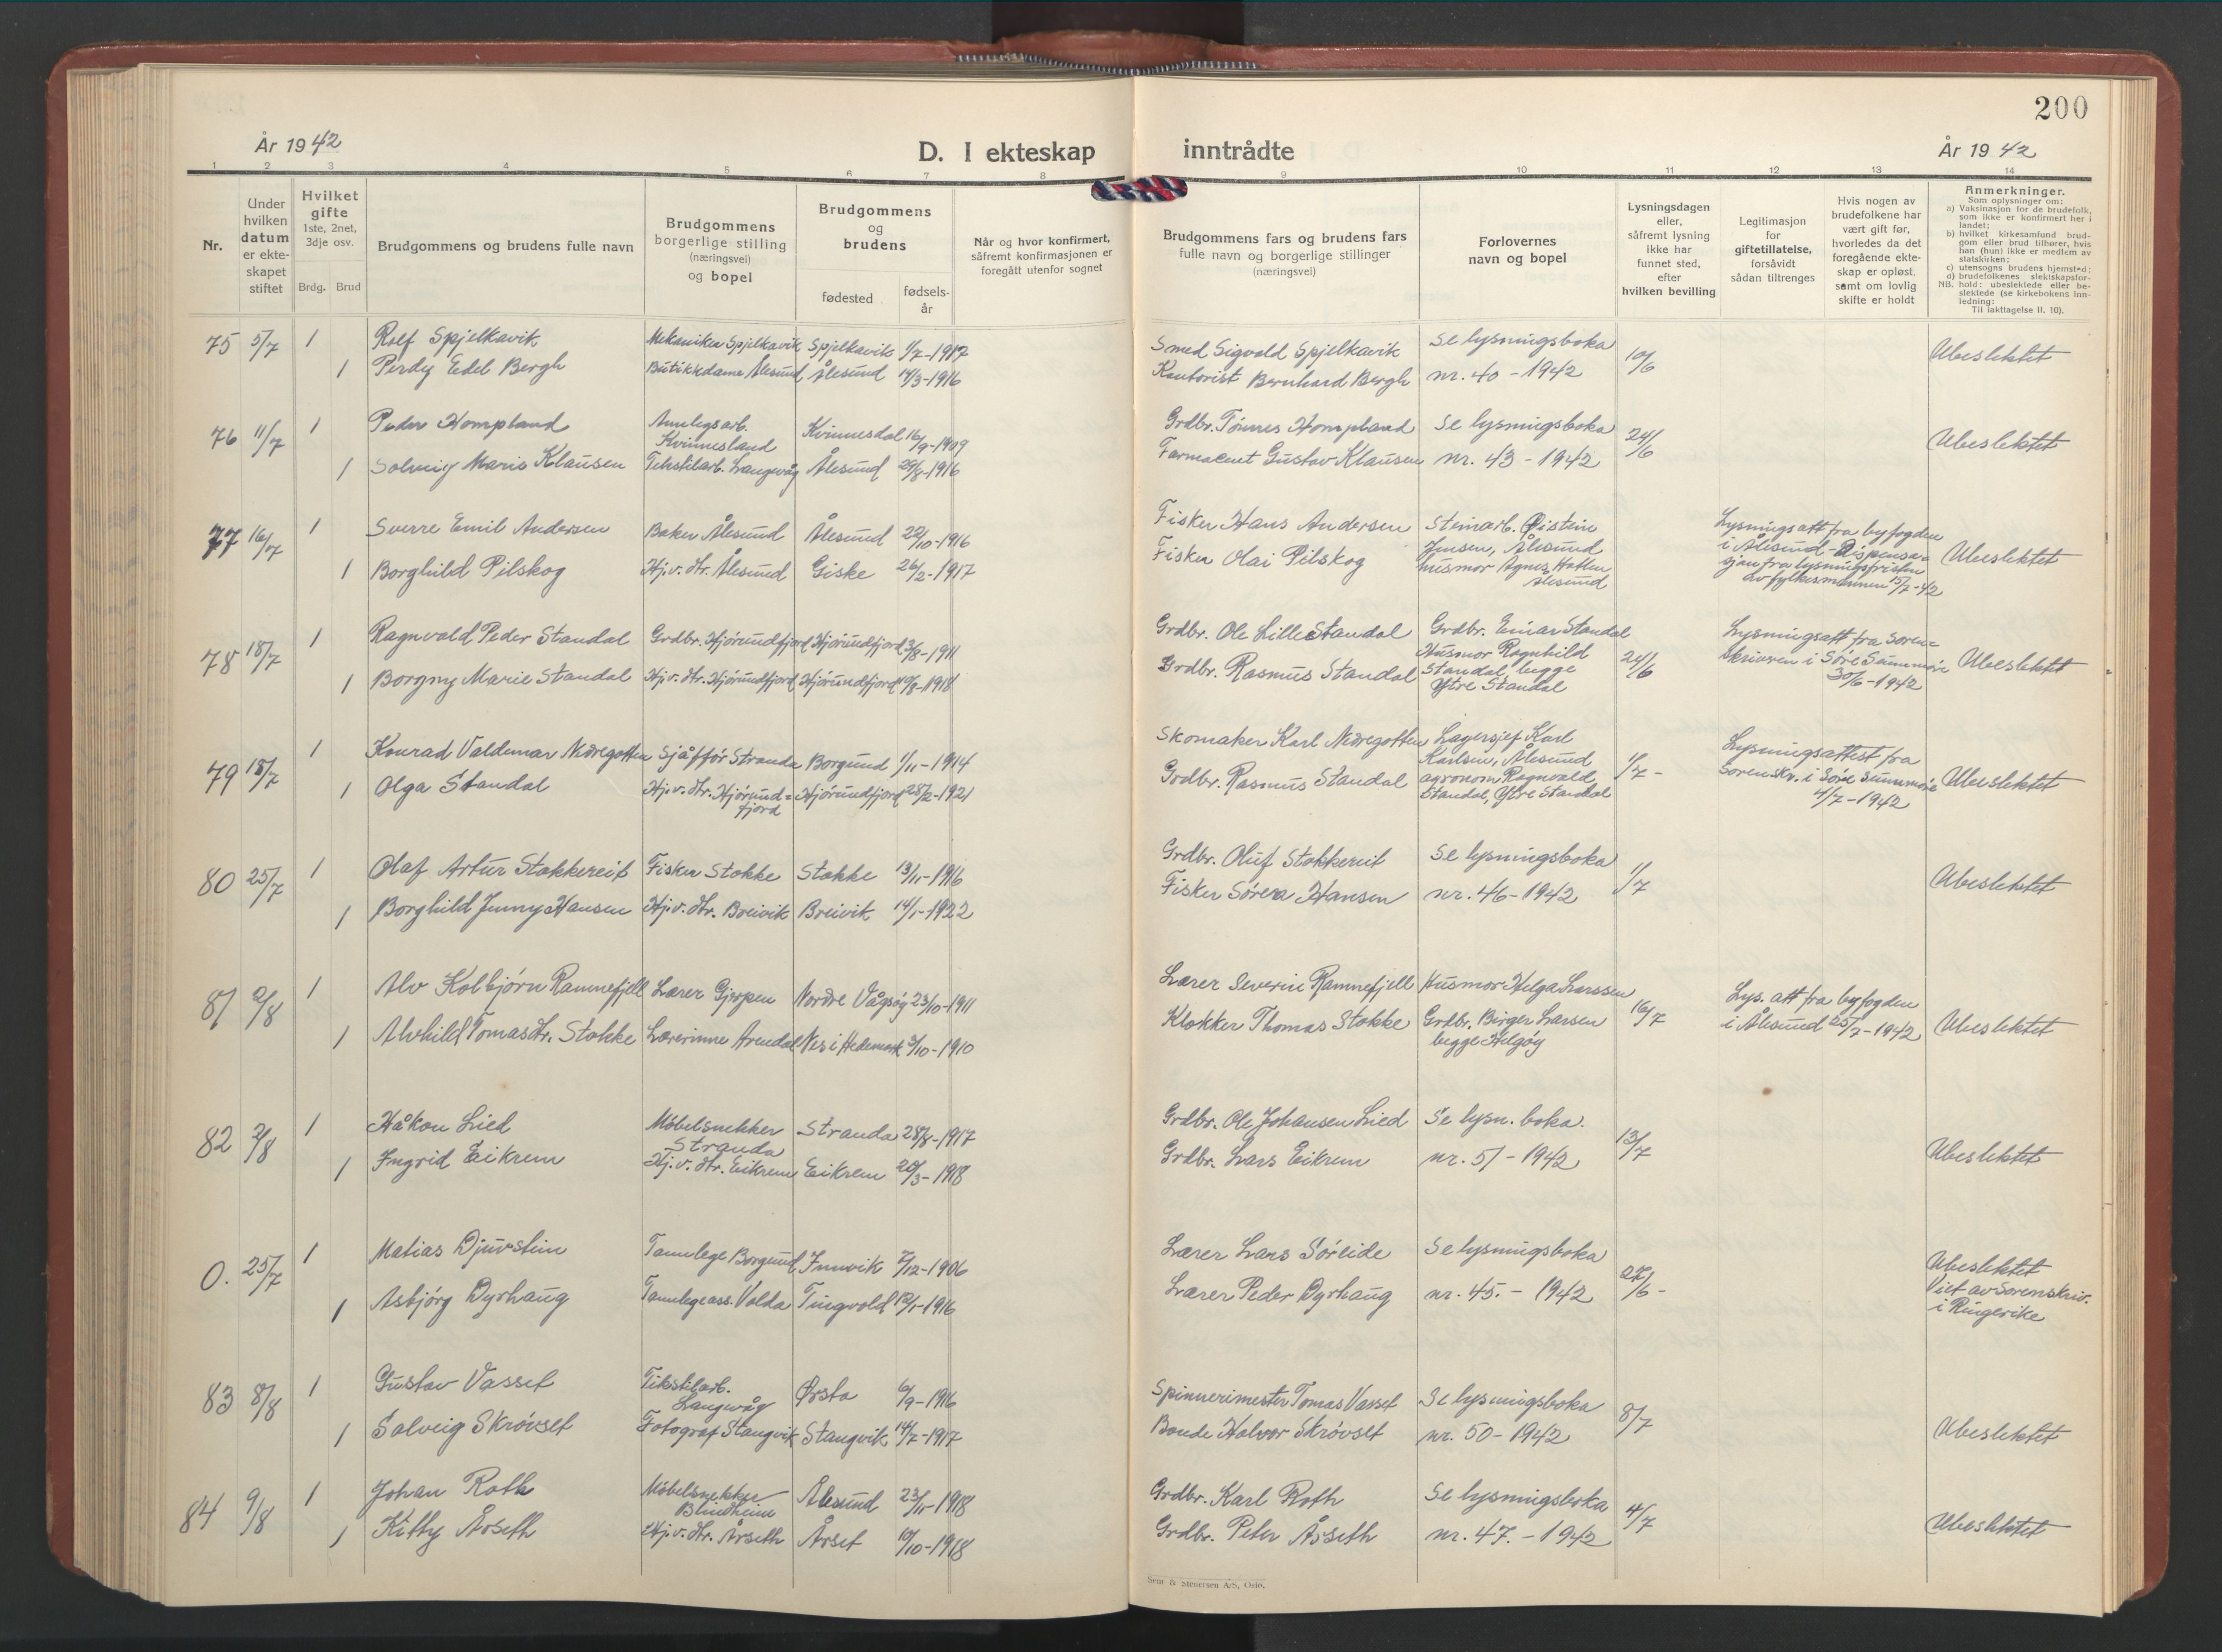 200
År 1942
D. I ekteskap inntrådte
År 1942
1 2 3 4 5 6 7 8 9 10 11 12 13 14
Nr.
Under hvilken datum er ekte-skapet stiftet
Hvilket gifte 1ste, 2net, 3dje osv.
Brdg. Brud
Brudgommens og brudens fulle navn
Brudgommens borgerlige stilling (næringsvei) og bopel
Brudgommens og brudens
fødested
fødsels-år
Når og hvor konfirmert, såfremt konfirmasjonen er foregått utenfor sognet
Brudgommens fars og brudens fars fulle navn og borgerlige stillinger (næringsvei)
Forlovernes navn og bopel
Lysningsdagen eller, såfremt lysning ikke har funnet sted, efter hvilken bevilling
Legitimasjon for giftetillatelse, forsåvidt sådan tiltrenges
Hvis nogen av brudefolkene har vært gift før, hvorledes da det foregående ekte-skap er opløst, samt om lovlig skifte er holdt
Anmerkninger.
Som oplysninger om:
a) Vaksinasjon for de brudefolk, som ikke er konfirmert her i landet;
b) hvilket kirkesamfund brud-gom eller brud tilhører, hvis han (hun) ikke er medlem av statskirken;
c) utensogns brudens hjemsted;
d) brudefolkenes slektskapsfor-hold: ubeslektede eller be-slektede (se kirkebokens inn-ledning:
NB.
Til iakttagelse II. 10).
75 5/7 1 Rolf Spjelkavik Mekaniker Spjelkavik Spjelkavik 1/7-1917 Smed Sigvald Spjelkavik Se lysningsboka 10/6 Ubeslektet
1 Perdy Edel Bergh Butikkdame Ålesund Ålesund 14/3-1916 Kontorist Bernhard Bergh nr. 40 - 1942
76 11/7 1 Peder Hompland Anlegsarb. Kvinnesland Kvinnesdal 16/9-1909 Grdbr. Tønnes Hompland Se lysningsboka 24/6 Ubeslektet
1 Solveig Marie Klausen Tekstilarb. Langevåg Ålesund 29/8-1916 Farmaceut Gustav Klausen nr. 43 - 1942
77 16/7 1 Sverre Emil Andersen Baker Ålesund Ålesund 22/10-1916 Fisker Hans Andersen Steinarb. Øistein Jensen, Ålesund Lysningsatt fra byfogden i Ålesund - Dispensa=sjon fra lysningsfristen av fylkesmannen 15/7-42 Ubeslektet
1 Borghild Pilskog Hj.v. dtr. Ålesund Giske 26/2-1917 Fisker Olai Pilskog husmor Agnes Hatlen Ålesund
78 18/7 1 Ragnvald Peder Standal Grdbr. Hjørundfjord Hjørundfjord 3/8-1911 Grdbr. Ole Lillestandal Grdbr. Einar Standal 24/6 Lysningsatt fra soren=skriveren i Søre Sunnmøre 30/6-1942 Ubeslektet
1 Borgny Marie Standal Hj.v. dtr. Hjørundfjord Hjørundfjord 19/8-1918 Grdbr. Rasmus Standal Husmor Ragnhild Standal, begge Ytre Standal
79 18/7 1 Konrad Valdemar Nedregotten Sjåffør Stranda Borgund 1/11-1914 Skomaker Karl Nedregotten Lagersjef Karl Karlsen, Ålesund 1/7- Lysningsattest fra Sorenskr. i Søre Sunnmøre 4/7-1942 Ubeslektet
1 Olga Standal Hj.v. dtr. Hjørund=fjord Hjørundfjord 28/2-1921 Grdbr. Rasmus Standal agronom Ragnvald Standal, Ytre Standal
80 25/7 1 Olaf Artur Stokkereit Fisker Stokke Stokke 13/11-1916 Grdbr. Oluf Stokkereit Se lysningsboka 1/7 Ubeslektet
1 Borghild Jenny Hansen Hj.v. dtr. Breivik Breivik 14/1-1922 Fisker Søren Hansen nr. 46-1942
81 2/8 1 Alv Kolbjørn Ramnefjell Lærer Gjerpen Nordre Vågsøy 23/10-1911 Lærer Severin Ramnefjell Husmor Helga Larssen 16/7 Lys. att fra byfogden i Ålesund 25/7-1942 Ubeslektet
1 Alvhild Tomasdtr. Stokke Lærerinne Arendal Nes i Hedemark 3/10-1910 Klokker Thomas Stokke Grdbr. Birger Larsen begge Helgøy
82 2/8 1 Håkon Lied Møbelsnekker Stranda Stranda 28/8-1917 Grdbr. Ole Johansen Lied Se lysn. boka. 13/7 Ubeslektet
1 Ingrid Eikrem Hj.v. dtr. Eikrem Eikrem 20/3-1918 Grdbr. Lars Eikrem nr. 51 - 1942
0. 25/7 1 Matias Djuvstein Tannlege Borgund Innvik 7/12-1906 Lærer Lars Søreide Se lysningsboka 27/6- Ubeslektet
1 Asbjørg Dyrhaug Tannlegeass. Volda Tingvold 12/1-1916 Lærer Peder Dyrhaug nr. 45. - 1942 Viet av Sorenskriv. i Ringerike
83 8/8 1 Gustav Vasset Tekstilarb. Langevåg Ørsta 6/9-1916 Spinnerimester Tomas Vasset Se lysningsboka 8/7 Ubeslektet
1 Solveig Skrøvset Fotograf Stangvik Stangvik 14/7-1917 Bonde Halvor Skrøvset nr. 50-1942
84 9/8 1 Johan Roth Møbelsnekker Blindheim Ålesund 23/11-1918 Grdbr. Karl Roth Se lysningsboka 4/7 Ubeslektet
1 Kitty Årseth Hj.v. dtr. Årseth Årset 10/10-1918 Grdbr. Peter Årseth nr. 47. - 1942
Sem & Stenersen A/S, Oslo.